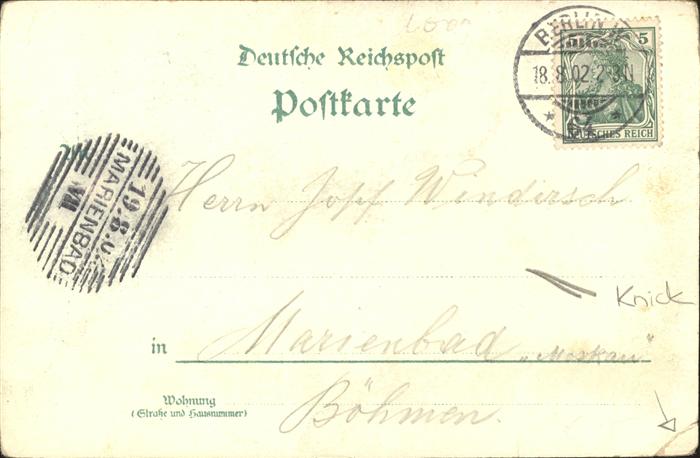 Deutsche Reichspost
Postkarte
BERLIN
18.8.02.2-3N
5 5
DEUTSCHES REICH
MARIENBAD
19.8.02
VII
Herrn Josef Windirsch
Knick
in Marienbad "Moskau"
Wohnung
(Straße und Hausnummer)
Böhmen.